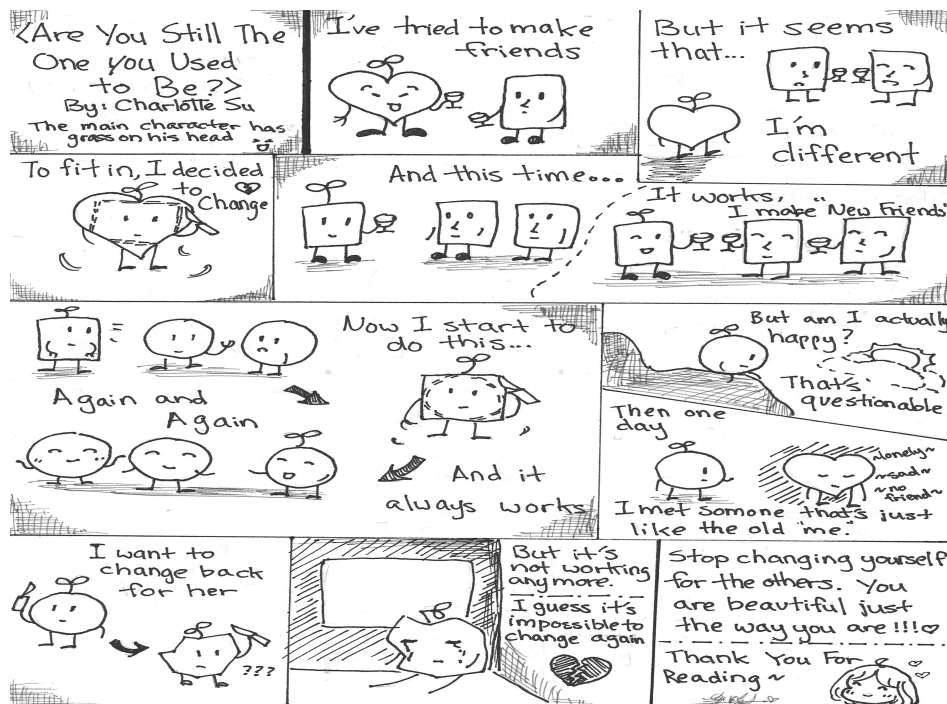 <Are You Still The
One you Used
to Be?>
By: Charlotte Su
The main character has
grass on his head
I've tried to make
friends
But it seems
that...
I'm
different
To fit in, I decided
to
Change
And this time...
It works,
I make "New Friends"
Again and
Again
Now I start to
do this...
And it
always works
But am I actually
happy?
That's
questionable
Then one
day
~lonely~
~sad~
~no
friend~
I met somone that's just
like the old "me."
I want to
change back
for her
???
But it's
not working
anymore.
I guess it's
impossible to
change again
Stop changing yourself
for the others. You
are beautiful just
the way you are !!!♡
Thank You For
Reading~